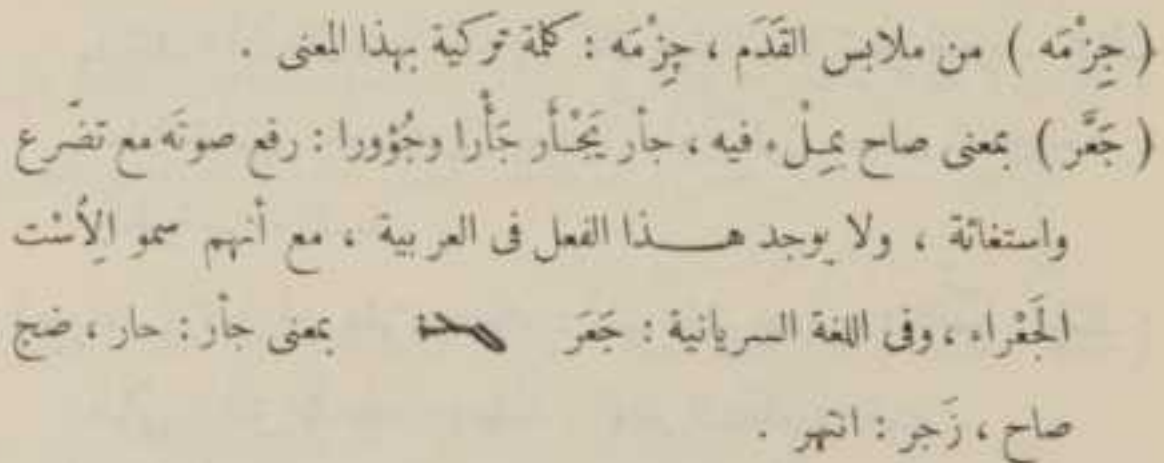 ( جِزْمَه ) من ملابس القَدَم ، چِزْمَه : كلمة تركية بهذا المعنى .
( جَعَّر ) بمعنى صاح بمِلْء فيه ، جأر يَجْـأَر جَأْرا وجُؤورا : رفع صوتَه مع تضَرع
واستغاثة ، ولا يوجد هـــذا الفعل فى العربية ، مع أنهم سمو الأِسْت
الجَعْراء ، وفى اللغة السريانية : جَعَر ܓܥܪ بمعنى جأر : حار ، ضج
صاح ، زَجر : انتهر .